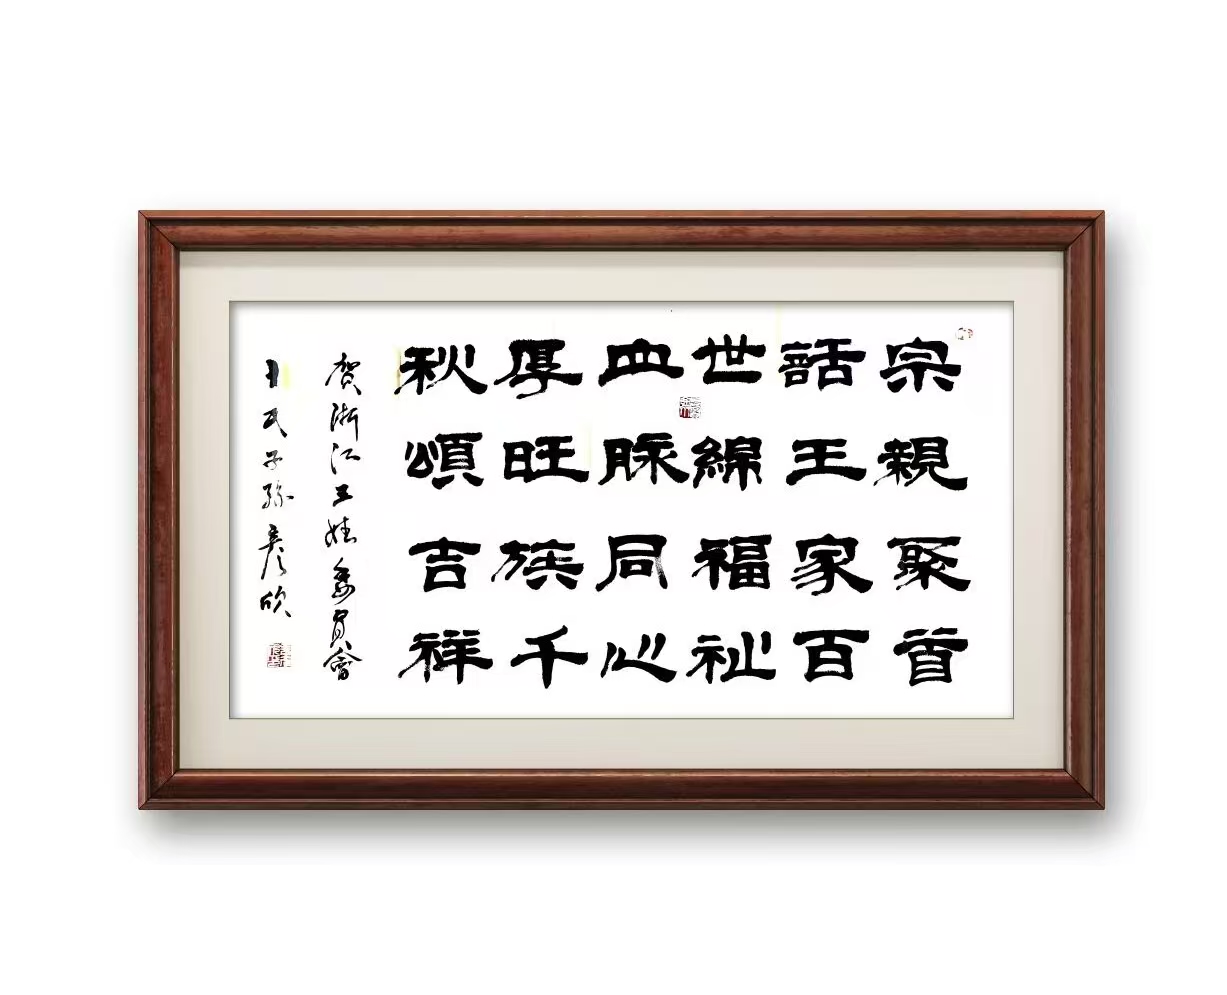 宗親聚首
話王家百
世綿福祉
血脉同心
厚旺族千
秋頌吉祥
贺浙江王姓委員會
王氏子孫彦欣